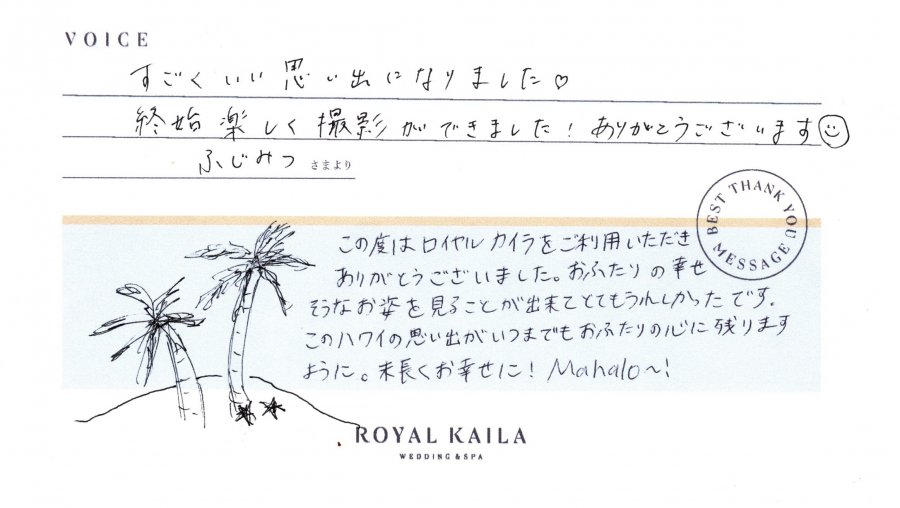 VOICE
すごくいい思い出になりました♡
終始楽しく撮影ができました！ありがとうございます☺
ふじみつ さまより
BEST THANK YOU MESSAGE
この度はロイヤルカイラをご利用いただき
ありがとうございました。おふたりの幸せ
そうなお姿を見ることが出来てとてもうれしかったです。
このハワイの思い出がいつまでもおふたりの心に残ります
ように。末長くお幸せに！Mahalo〜！
ROYAL KAILA
WEDDING & SPA